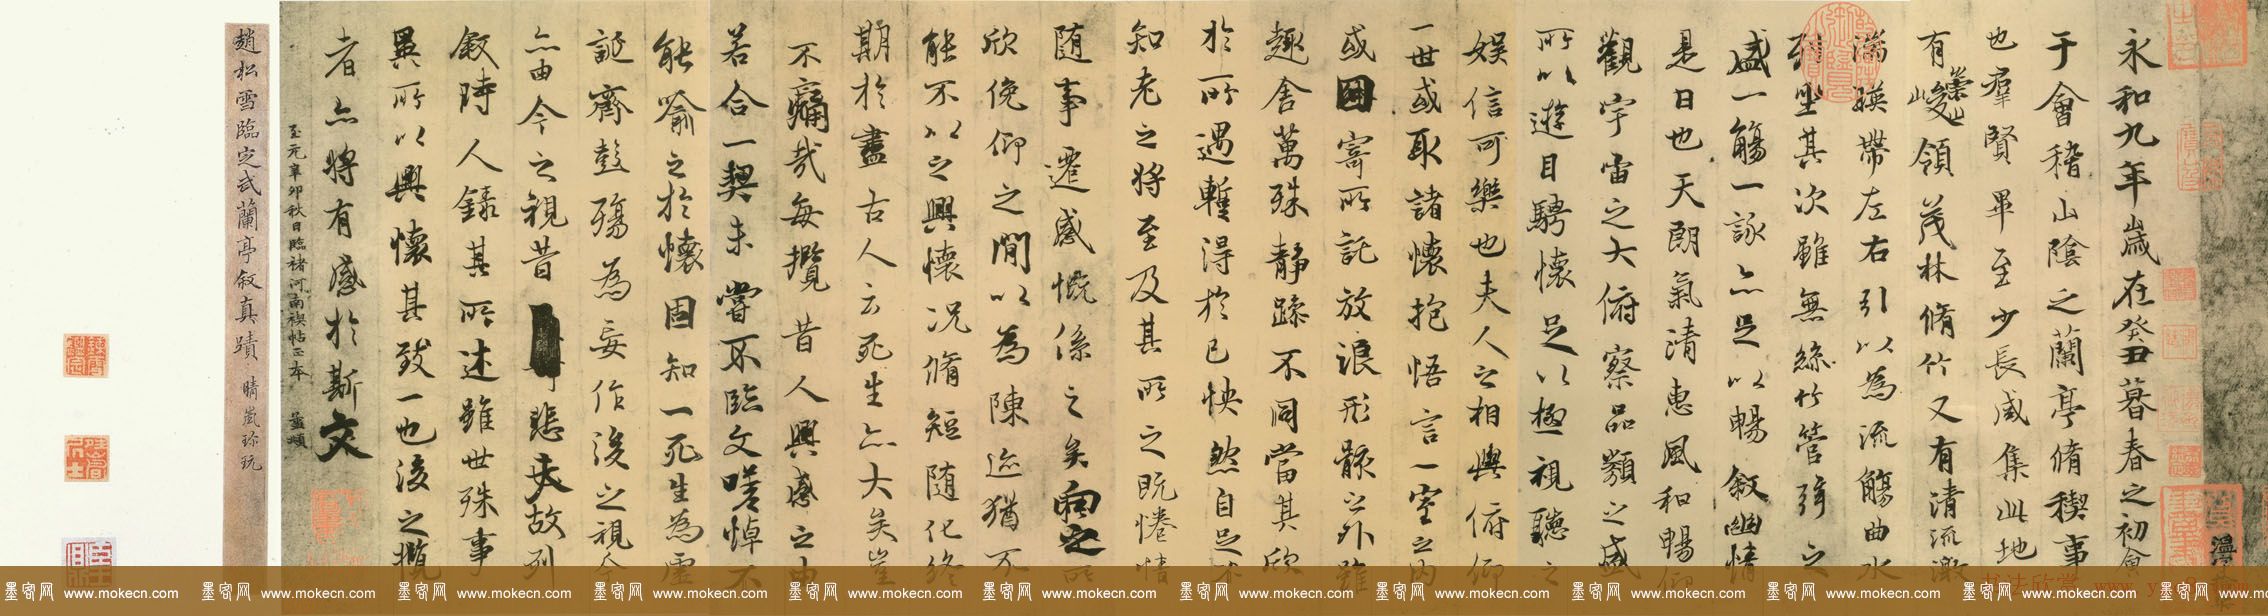 永和九年歲在癸丑暮春之初會
于會稽山陰之蘭亭脩稧事
也羣賢畢至少長咸集此地
有崇山峻領茂林脩竹又有清流激
湍暎帶左右引以為流觴曲水
列坐其次雖無絲竹管弦之
盛一觴一詠亦足以暢敘幽情
是日也天朗氣清惠風和暢仰
觀宇宙之大俯察品類之盛
所以遊目騁懷足以極視聽之
娛信可樂也夫人之相與俯仰
一世或取諸懷抱悟言一室之內
或因寄所託放浪形骸之外雖
趣舍萬殊静躁不同當其欣
於所遇暫得於己怏然自足不
知老之將至及其所之既惓情
隨事遷感慨係之矣向之所
欣俛仰之閒以為陳迹猶不
能不以之興懷況脩短隨化終
期於盡古人云死生亦大矣豈
不痛哉每攬昔人興感之由
若合一契未嘗不臨文嗟悼不
能喻之於懷固知一死生為虛
誕齊彭殤為妄作後之視今
亦由今之視昔悲夫故列
敘時人錄其所述雖世殊事
異所以興懷其致一也後之攬
者亦將有感於斯文
至元辛卯秋日臨褚河南稧帖正本 孟頫
趙松雪臨定武蘭亭敘真蹟 晴嵐珍玩
墨客网 www.mokecn.com 墨客网 www.mokecn.com 墨客网 www.mokecn.com 墨客网 www.mokecn.com 墨客网 www.mokecn.com 墨客网 www.mokecn.com 墨客网 www.mokecn.com 墨客网 www.mokecn.com 墨客网 www.mokecn.com 墨客网 www.mokecn.com
书法欣赏